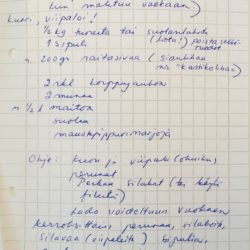 kun mahtuu vuokaan)
kuori, viipaloi!
½ kg tuoreita tai suolasilakoita
1 sipuli (liota!) poista selkäruodot
n. 200 gr raitasivaa (sianlihaa
2 rkl korppujauhoa
2 munaa
n ½ l maitoa
suolaa
maustepippurimarjoja
Ohje: kuori ja viipaloi (ohuiksi)
perunat
Perkaa silakat (tai käytä
fileitä)
Lado voideltuun vuokaan
kerroksittain perunaa, silakoita,
silavaa (viipaleita) sipulia,